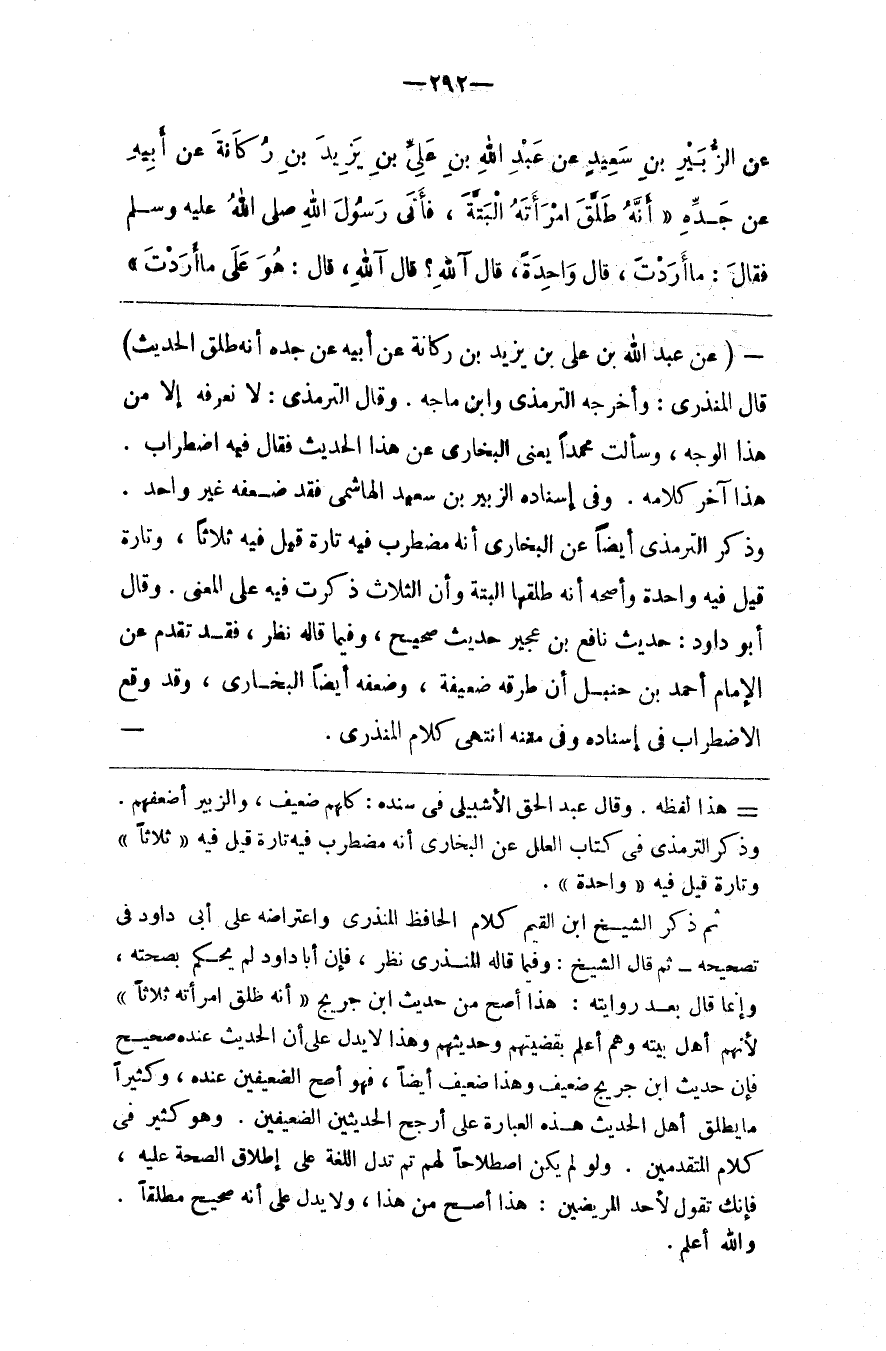 —٢٩٢—
عن الزُّبَيْرِ بنِ سَعِيدٍ عن عَبْدِ اللهِ بنِ عَلِيِّ بنِ يَزِيدَ بنِ رُكَانَةَ عن أَبِيهِ
عن جَـدِّهِ « أَنَّهُ طَلَّقَ امْرَأَتَهُ الْبَتَّةَ ، فأَتَى رَسُولَ اللهِ صلى اللهُ عليه وسـلم
فقالَ : ماأَرَدْتَ ، قال وَاحِدَةً، قال آللهِ؟ قال آللهِ، قال : هُوَ عَلَى ماأَرَدْتَ »
— ( عن عبد الله بن على بن يزيد بن ركانة عن أبيه عن جده أنه طلق الحديث)
قال المنذرى : وأخرجه الترمذى وابن ماجه . وقال الترمذى : لا نعرفه إلا من
هذا الوجه ، وسألت محمداً يعنى البخارى عن هذا الحديث فقال فيه اضطراب .
هذا آخر كلامه . وفى إسناده الزبير بن سعيد الهاشمى فقد ضـعفه غير واحد .
وذكر الترمذى أيضاً عن البخارى أنه مضطرب فيه تارة قيل فيه ثلاثاً ، وتارة
قيل فيه واحدة وأصحه أنه طلقها البتة وأن الثلاث ذكرت فيه على المعنى . وقال
أبو داود : حديث نافع بن عجير حديث صحيح ، وفيما قاله نظر ، فقـد تقدم عن
الإمام أحمد بن حنبـل أن طرقه ضعيفة ، وضعفه أيضاً البخـارى ، وقد وقع
الاضطراب فى إسناده وفى متنه انتهى كلام المنذرى . —
= هذا لفظه . وقال عبد الحق الأشبيلى فى سنده : كلهم ضعيف ، والزبير أضعفهم .
وذكر الترمذى فى كتاب العلل عن البخارى أنه مضطرب فيه تارة قيل فيه « ثلاثاً »
وتارة قيل فيه « واحدة » .
ثم ذكر الشيـخ ابن القيم كلام الحافظ المنذرى واعتراضه على أبى داود فى
تصحيحه ـ ثم قال الشيخ : وفيما قاله المنـذرى نظر ، فإن أبا داود لم يحكـم بصحته ،
وإنما قال بعـد روايته : هذا أصح من حديث ابن جريج « أنه طلق امرأته ثلاثاً »
لأنهم أهل بيته وهم أعلم بقضيتهم وحديثهم وهذا لايدل على أن الحديث عنده صحيـح
فإن حديث ابن جريج ضعيف وهذا ضعيف أيضاً ، فهو أصح الضعيفين عنده ، وكثيراً
مايطلق أهل الحديث هـذه العبارة على أرجح الحديثين الضعيفين . وهو كثير فى
كلام المتقدمين . ولو لم يكن اصطلاحاً لهم لم تدل اللغة على إطلاق الصحة عليه ،
فإنك تقول لأحد المريضين : هذا أصـح من هذا ، ولا يدل على أنه صحيح مطلقاً .
والله أعلم .